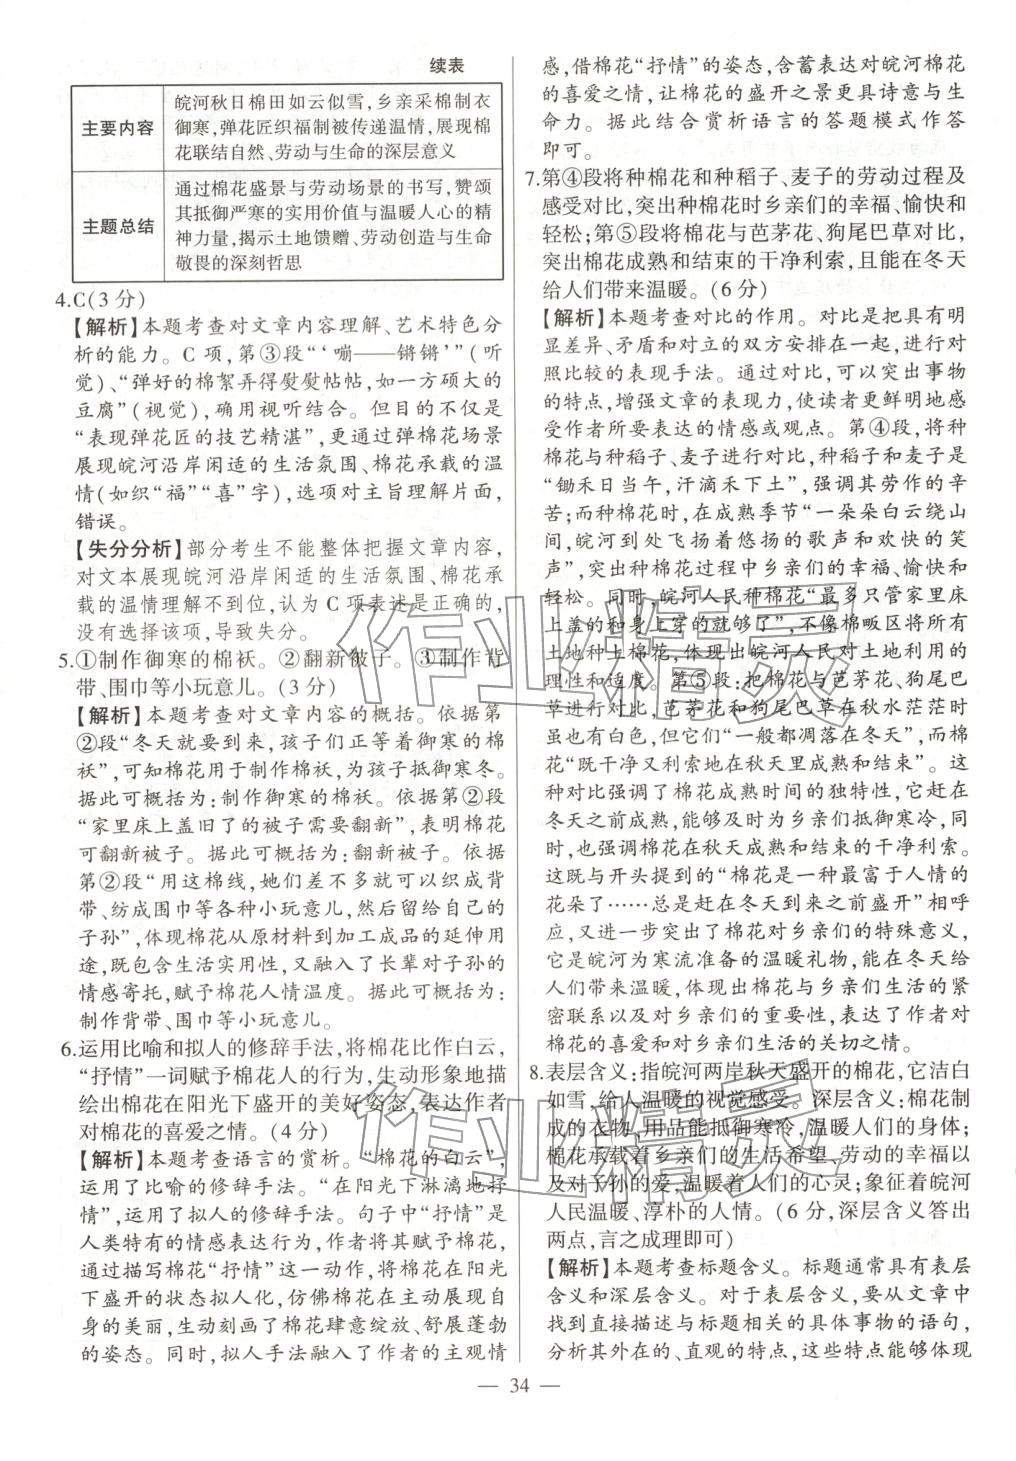 续表
主要内容
皖河秋日棉田如云似雪,乡亲采棉制衣
御寒,弹花匠织福制被传递温情,展现棉
花联结自然、劳动与生命的深层意义
主题总结
通过棉花盛景与劳动场景的书写,赞颂
其抵御严寒的实用价值与温暖人心的精
神力量,揭示土地馈赠、劳动创造与生命
敬畏的深刻哲思
4.C(3分)
【解析】本题考查对文章内容理解、艺术特色分
析的能力。C项,第③段“‘嘣——锵锵’”(听
觉)、“弹好的棉絮弄得熨熨帖帖,如一方硕大的
豆腐”(视觉),确用视听结合。但目的不仅是
“表现弹花匠的技艺精湛”,更通过弹棉花场景
展现皖河沿岸闲适的生活氛围、棉花承载的温
情(如织“福”“喜”字),选项对主旨理解片面,
错误。
【失分分析】部分考生不能整体把握文章内容,
对文本展现皖河沿岸闲适的生活氛围、棉花承
载的温情理解不到位,认为C项表述是正确的,
没有选择该项,导致失分。
5.①制作御寒的棉袄。②翻新被子。③制作背
带、围巾等小玩意儿。(3分)
【解析】本题考查对文章内容的概括。依据第
②段“冬天就要到来,孩子们正等着御寒的棉
袄”,可知棉花用于制作棉袄,为孩子抵御寒冬。
据此可概括为:制作御寒的棉袄。依据第②段
“家里床上盖旧了的被子需要翻新”,表明棉花
可翻新被子。据此可概括为:翻新被子。依据
第②段“用这棉线,她们差不多就可以织成背
带、纺成围巾等各种小玩意儿,然后留给自己的
子孙”,体现棉花从原材料到加工成品的延伸用
途,既包含生活实用性,又融入了长辈对子孙的
情感寄托,赋予棉花人情温度。据此可概括为:
制作背带、围巾等小玩意儿。
6.运用比喻和拟人的修辞手法,将棉花比作白云,
“抒情”一词赋予棉花人的行为,生动形象地描
绘出棉花在阳光下盛开的美好姿态,表达作者
对棉花的喜爱之情。(4分)
【解析】本题考查语言的赏析。“棉花的白云”,
运用了比喻的修辞手法。“在阳光下淋漓地抒
情”,运用了拟人的修辞手法。句子中“抒情”是
人类特有的情感表达行为,作者将其赋予棉花,
通过描写棉花“抒情”这一动作,将棉花在阳光
下盛开的状态拟人化,仿佛棉花在主动展现自
身的美丽,生动刻画了棉花肆意绽放、舒展蓬勃
的姿态。同时,拟人手法融入了作者的主观情
感,借棉花“抒情”的姿态,含蓄表达对皖河棉花
的喜爱之情,让棉花的盛开之景更具诗意与生
命力。据此结合赏析语言的答题模式作答
即可。
7.第④段将种棉花和种稻子、麦子的劳动过程及
感受对比,突出种棉花时乡亲们的幸福、愉快和
轻松;第⑤段将棉花与芭茅花、狗尾巴草对比,
突出棉花成熟和结束的干净利索,且能在冬天
给人们带来温暖。(6分)
【解析】本题考查对比的作用。对比是把具有明
显差异、矛盾和对立的双方安排在一起,进行对
照比较的表现手法。通过对比,可以突出事物
的特点,增强文章的表现力,使读者更鲜明地感
受作者所要表达的情感或观点。第④段,将种
棉花与种稻子、麦子进行对比,种稻子和麦子是
“锄禾日当午,汗滴禾下土”,强调其劳作的辛
苦;而种棉花时,在成熟季节“一朵朵白云绕山
间,皖河到处飞扬着悠扬的歌声和欢快的笑
声”,突出种棉花过程中乡亲们的幸福、愉快和
轻松。同时,皖河人民种棉花“最多只管家里床
上盖的和身上穿的就够了”,不像棉畈区将所有
土地种上棉花,体现出皖河人民对土地利用的
理性和适度。第⑤段:把棉花与芭茅花、狗尾巴
草进行对比,芭茅花和狗尾巴草在秋水茫茫时
虽也有白色,但它们“一般都凋落在冬天”,而棉
花“既干净又利索地在秋天里成熟和结束”。这
种对比强调了棉花成熟时间的独特性,它赶在
冬天之前成熟,能够及时为乡亲们抵御寒冷,同
时,也强调棉花在秋天成熟和结束的干净利索。
这既与开头提到的“棉花是一种最富于人情的
花朵了……总是赶在冬天到来之前盛开”相呼
应,又进一步突出了棉花对乡亲们的特殊意义,
它是皖河为寒流准备的温暖礼物,能在冬天给
人们带来温暖,体现出棉花与乡亲们生活的紧
密联系以及对乡亲们的重要性,表达了作者对
棉花的喜爱和对乡亲们生活的关切之情。
8.表层含义:指皖河两岸秋天盛开的棉花,它洁白
如雪,给人温暖的视觉感受。深层含义:棉花制
成的衣物、用品能抵御寒冷,温暖人们的身体;
棉花承载着乡亲们的生活希望、劳动的幸福以
及对子孙的爱,温暖着人们的心灵;象征着皖河
人民温暖、淳朴的人情。(6分,深层含义答出
两点,言之成理即可)
【解析】本题考查标题含义。标题通常具有表层
含义和深层含义。对于表层含义,要从文章中
找到直接描述与标题相关的具体事物的语句,
分析其外在的、直观的特点,这些特点能够体现
— 34 —
作业精灵
作业精灵